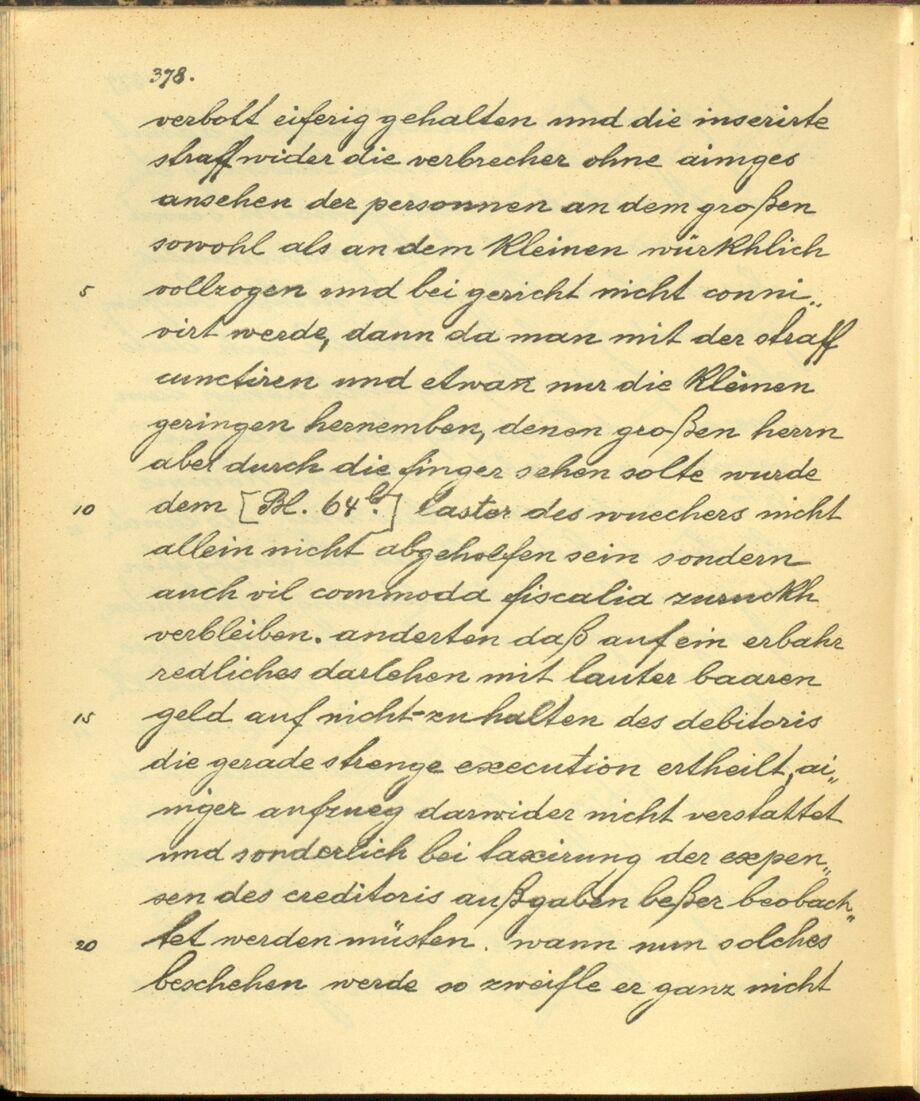 378.
verbott eiferig gehalten und die inserirte
straff wider die verbrecher ohne ainiges
ansehen der personnen an dem großen
sowohl als an dem kleinen würkhlich
5 vollzogen und bei gericht nicht conni„
virt werde, dann da man mit der straff
cunctiren und etwan nur die kleinen
geringen hernemben, denen großen herrn
aber durch die finger sehen solte wurde
10 dem [Bl. 64b.] laster des wuechers nicht
allein nicht abgeholfen sein sondern
auch vil commoda fiscalia zuruckh
verbleiben. anderten daß auf ein erbahr
redliches darlehen mit lauter baaren
15 geld auf nicht-zuhalten des debitoris
die gerade strenge execution ertheilt, ai„
niger aufzueg darwider nicht verstattet
und sonderlich bei taxirung der expen„
sen des creditoris außgaben beßer beobach„
20 tet werden müsten. wann nun solches
beschehen werde so zweifle er ganz nicht